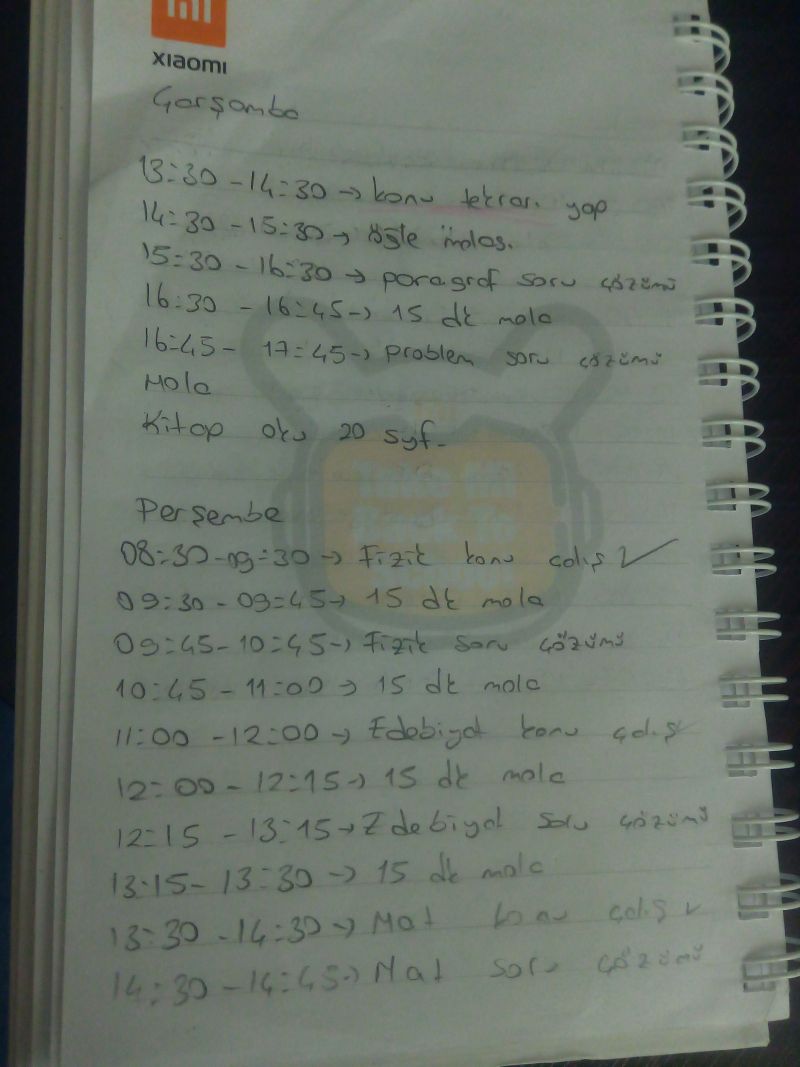 xiaomi
Çarşamba
13:30 - 14:30 → konu tekrarı yap
14:30 - 15:30 → öğle molas.
15:30 - 16:30 → paragraf soru çözümü
16:30 - 16:45 → 15 dk mola
16:45 - 17:45 → problem soru çözümü
Mola
Kitap oku 20 syf.
Take Mi
Back To
Perşembe
08:30-09:30 → Fizik konu çalış ✓
09:30 - 09:45 → 15 dk mola
09:45 - 10:45 → Fizik soru çözümü
10:45 - 11:00 → 15 dk mola
11:00 - 12:00 → Edebiyat konu çalış
12:00 - 12:15 → 15 dk mola
12:15 - 13:15 → Edebiyat soru çözümü
13:15 - 13:30 → 15 dk mola
13:30 - 14:30 → Mat konu çalış ✓
14:30 - 14:45 → Mat soru çözümü